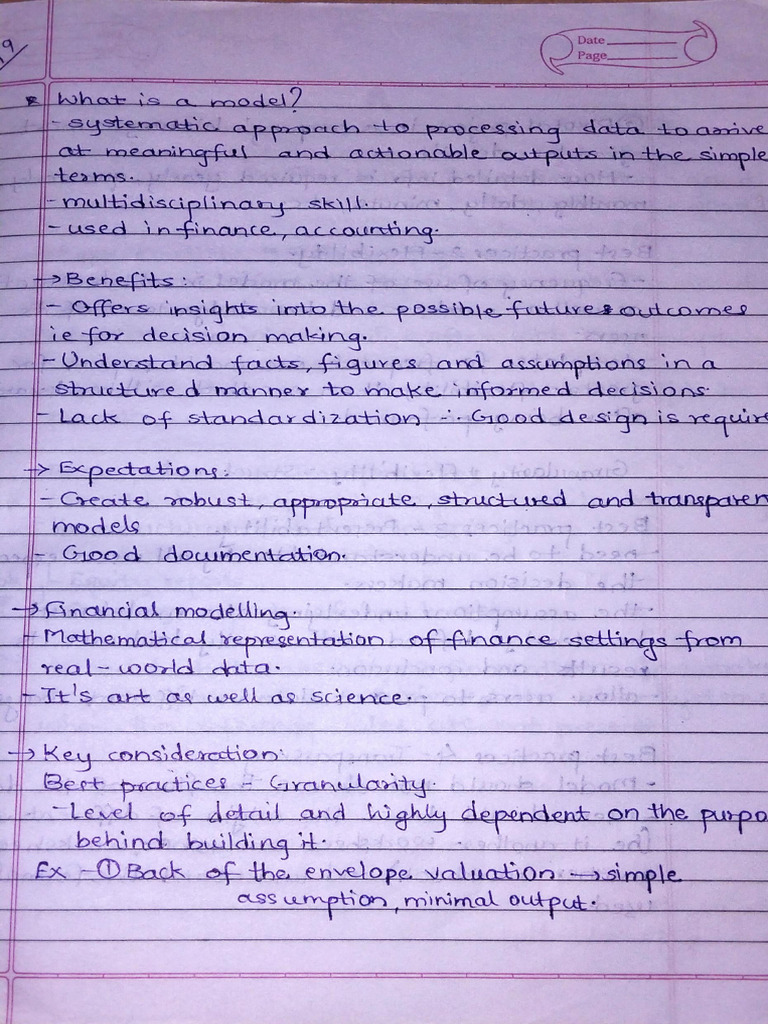 9
Date
Page
* What is a model?
- systematic approach to processing data to arrive
at meaningful and actionable outputs in the simple
terms.
- multidisciplinary skill.
- used in finance, accounting.
→ Benefits:
- Offers insights into the possible future outcomes
ie for decision making.
- Understand facts, figures and assumptions in a
structured manner to make informed decisions.
- Lack of standardization ∴ Good design is require
→ Expectations:
- Create robust, appropriate, structured and transparen
models
- Good documentation.
→ Financial modelling.
- Mathematical representation of finance settings from
real-world data.
- It's art as well as science.
→ Key consideration:
Best practices - Granularity.
- Level of detail and highly dependent on the purpo
behind building it.
Ex - ① Back of the envelope valuation → simple
assumption, minimal output.